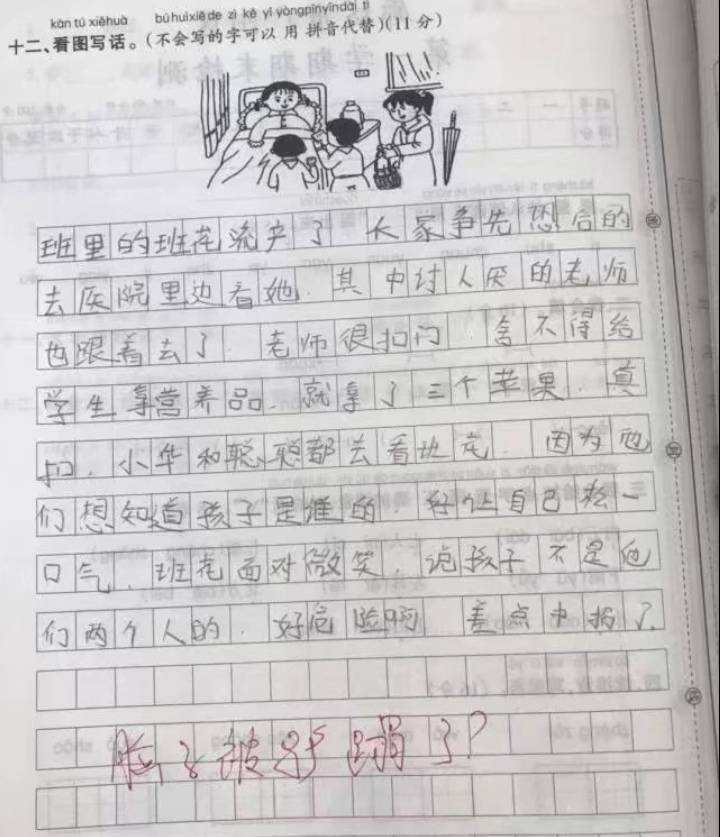 kàn tú xiěhuà bú huì xiě de zì kě yǐ yòng pīn yīn dài tì
十二、看图写话。(不会写的字可以 用 拼音代替)(11 分)
班里的班花流产了 大家争先恐后的
去医院里边看她.其中讨人厌的老师
也跟着去了.老师很扣门 舍不得给
学生拿营养品.就拿了三个苹果 真
扣.小华和聪聪都去看班花.因为他
们想知道孩子是谁的.好让自己松一
口气.班花面对微笑 说孩子不是他
们两个人的.好危险啊 差点中招了.
脑子被驴踢了?